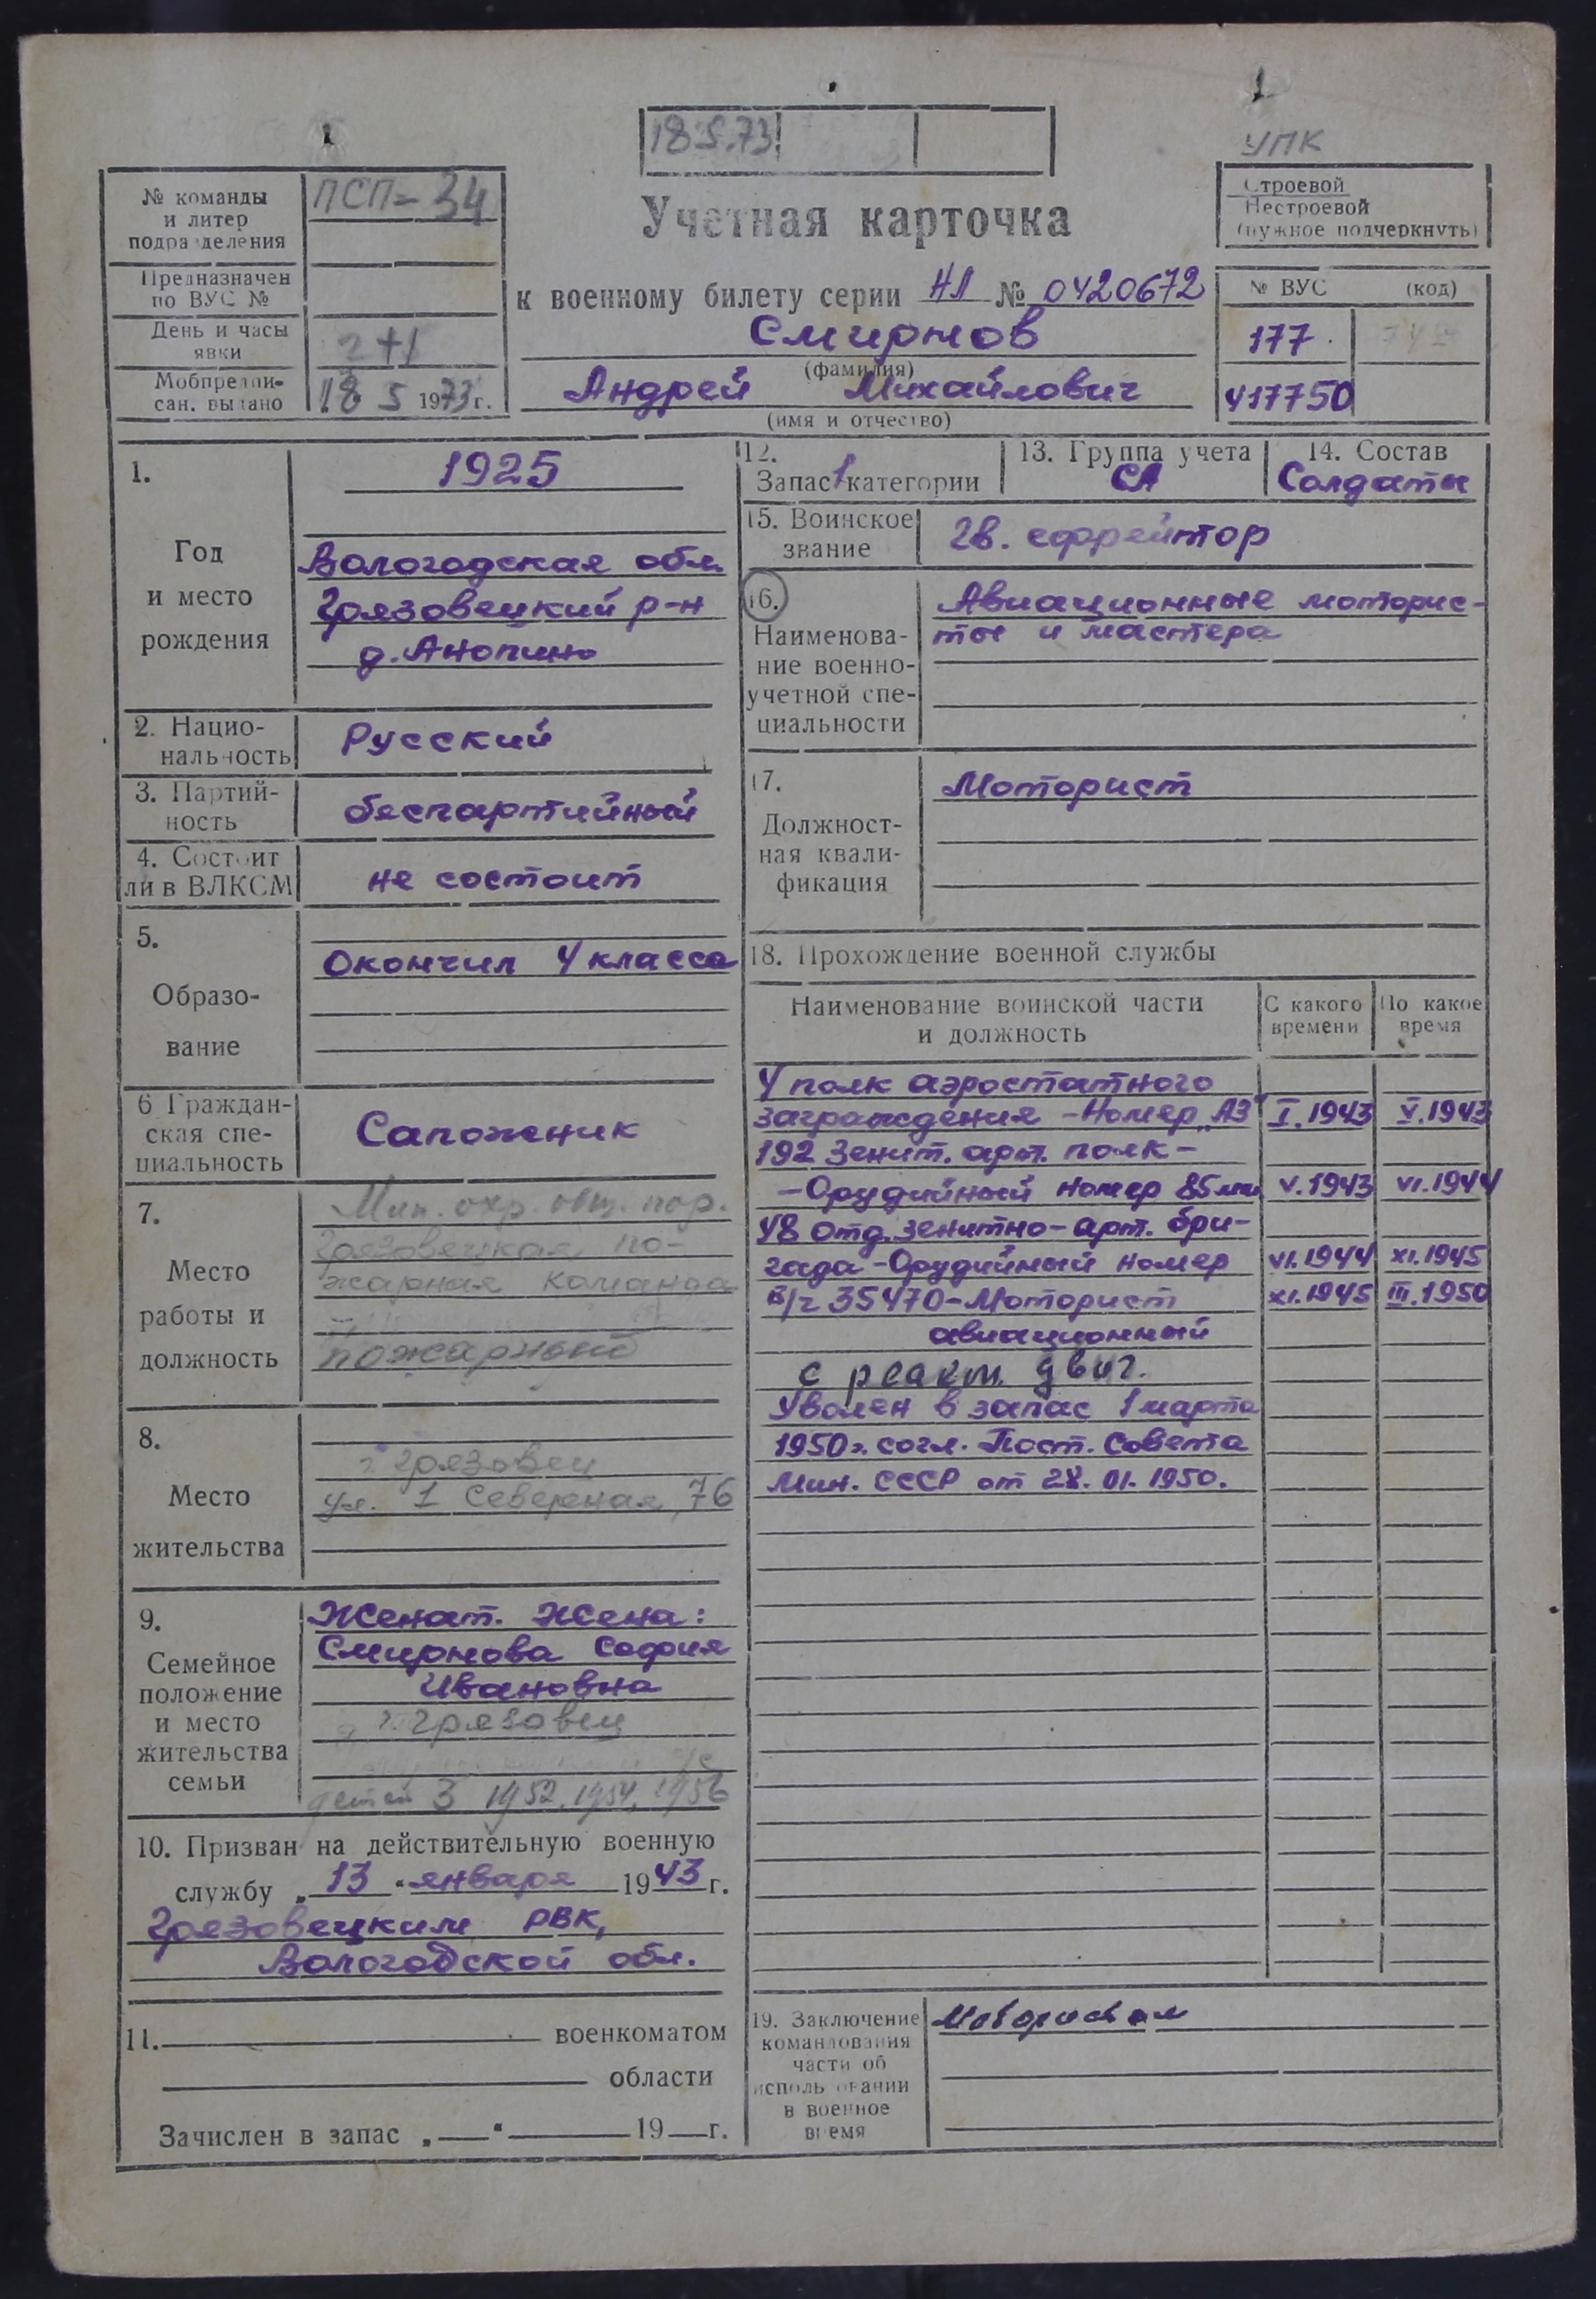 18.5.73
УПК
№ команды
и литер
подразделения
ПСП-34
Предназначен
по ВУС №
День и часы
явки
2+1
Мобпредпи-
сан. выдано
18 5 1973 г.
Учетная карточка
к военному билету серии НЛ № 0420672
Смирнов
(фамилия)
Андрей Михайлович
(имя и отчество)
Строевой
Нестроевой
(нужное подчеркнуть)
№ ВУС (код)
177
417750
1.
Год
и место
рождения
1925
Вологодская обл.
Грязовецкий р-н
д. Анопино
2. Нацио-
нальность
Русский
3. Партий-
ность
беспартийный
4. Состоит
ли в ВЛКСМ
не состоит
5.
Образо-
вание
Окончил 4 класса
6 Граждан-
ская спе-
циальность
Сапожник
7.
Место
работы и
должность
Мин. охр. общ. пор.
Грязовецкая по-
жарная команда
пожарный
8.
Место
жительства
г. Грязовец
ул. 1 Северная, 76
9.
Семейное
положение
и место
жительства
семьи
Женат. Жена:
Смирнова София
Ивановна
г. Грязовец
детей 3 1952, 1954, 1956
10. Призван на действительную военную
службу „13“ января 1943 г.
Грязовецким РВК,
Вологодской обл.
11. военкоматом
области
Зачислен в запас „ “ 19 г.
12.
Запас 1 категории
13. Группа учета
СА
14. Состав
Солдаты
15. Воинское
звание
Гв. ефрейтор
16.
Наименова-
ние военно-
учетной спе-
циальности
Авиационные моторис-
ты и мастера
17.
Должност-
ная квали-
фикация
Моторист
18. Прохождение военной службы
Наименование воинской части
и должность
С какого
времени
По какое
время
4 полк аэростатного
заграждения - Номер „АЗ“ I.1943 V.1943
192 Зенит. арт. полк -
- Орудийный номер 85мм V.1943 VI.1944
48 отд. зенитно-арт. бри-
гада - Орудийный номер VI.1944 XI.1945
в/ч 35470 - Моторист XI.1945 III.1950
авиационный
с реакт. двиг.
Уволен в запас 1 марта
1950 г. согл. Пост. Совета
Мин. СССР от 28.01.1950.
19. Заключение
командования
части об
использовании
в военное
время
Мотористом